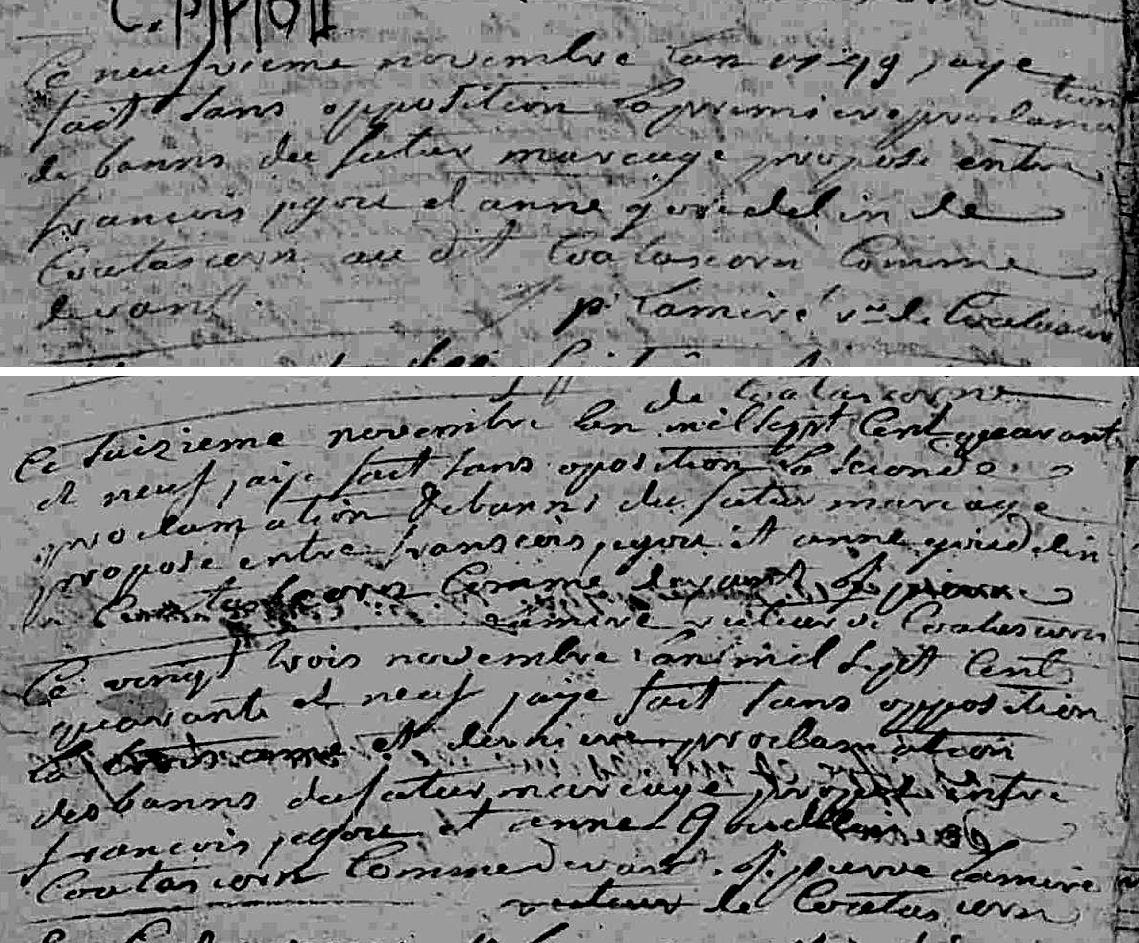 Ce neufvieme novembre lan 1749 jaye
fait sans opposition la premiere proclamation
de banns du futur mareage propose entre
francois pgou et anne gouedelin de
Coatascorn au dit Coatascorn Comme
devant p. Lamire vr de Coatascorn
de Coatascorn
Ce seizieme novembre lan mil sept Cent quarante
et neuf jaije fait sans oposition la seconde
proclamation de banns du futur mareage
propose entre franscois pegou et anne gouedelin
Coatascorn Comme devant
Lamire recteur de Coatascorn
Ce vingt trois novembre lan mil sept Cent
quarante et neuf jaije fait sans opposition
la troisieme et derniere proclamation
des banns du futur mareage propose entre
francois pegou et anne Gouedellin
Coatascorn Comme devant. pierre Lamire
recteur de Coatascorn